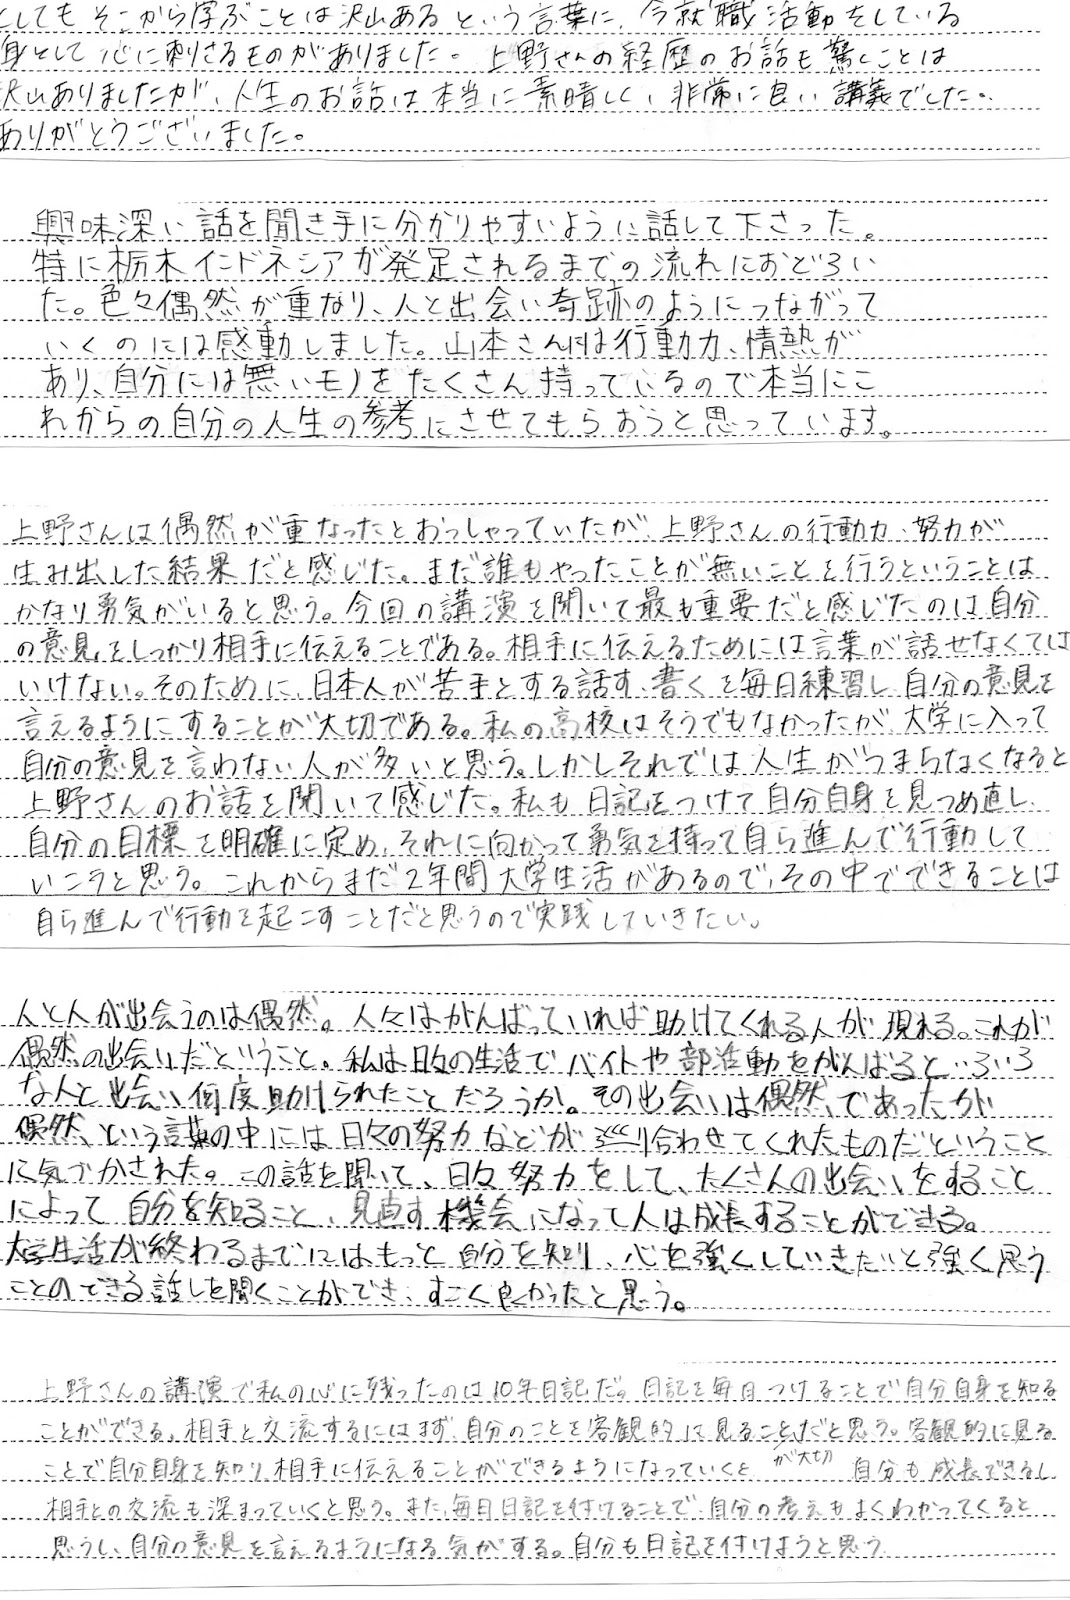 としてもそこから学ぶことは沢山あるという言葉に、今就職活動をしている
身として心に刺さるものがありました。上野さんの経歴のお話も驚くことは
沢山ありましたが、人生のお話は本当に素晴しく、非常に良い講義でした。
ありがとうございました。
興味深い話を聞き手に分かりやすいように話して下さった。
特に栃木インドネシアが発足されるまでの流れにおどろい
た。色々偶然が重なり、人と出会い奇跡のようにつながって
いくのには感動しました。山本さんには行動力、情熱が
あり、自分には無いモノをたくさん持っているので本当にこ
れからの自分の人生の参考にさせてもらおうと思っています。
上野さんは偶然が重なったとおっしゃっていたが、上野さんの行動力、努力が
生み出した結果だと感じた。まだ誰もやったことが無いことを行うということは
かなり勇気がいると思う。今回の講演を聞いて最も重要だと感じたのは自分
の意見をしっかり相手に伝えることである。相手に伝えるためには言葉が話せなくては
いけない。そのために、日本人が苦手とする話す、書くを毎日練習し、自分の意見を
言えるようにすることが大切である。私の高校はそうでもなかったが、大学に入って
自分の意見を言わない人が多いと思う。しかしそれでは人生がつまらなくなると
上野さんのお話を聞いて感じた。私も日記をつけて自分自身を見つめ直し、
自分の目標を明確に定め、それに向かって勇気を持って自ら進んで行動して
いこうと思う。これからまだ2年間大学生活があるので、その中でできることは
自ら進んで行動を起こすことだと思うので実践していきたい。
人と人が出会うのは偶然。人々はがんばっていれば助けてくれる人が現れる。これが
偶然の出会いだということ。私は日々の生活でバイトや部活動をがんばるといろいろ
な人と出会い、何度助けられたことだろうか。その出会いは偶然、であったが
偶然、という言葉の中には日々の努力などが巡り合わせてくれたものだということ
に気づかされた。この話を聞いて、日々努力をして、たくさんの出会いをすること
によって自分を知ること、見直す機会になって人は成長することができる。
大学生活が終わるまでにはもっと自分を知り、心を強くしていきたいと強く思う
ことのできる話しを聞くことができ、すごく良かったと思う。
上野さんの講演で私の心に残ったのは10年日記だ。日記を毎日つけることで自分自身を知る
ことができる。相手と交流するにはまず、自分のことを客観的に見ることだと思う。客観的に見る
が大切
ことで自分自身を知り、相手に伝えることができるようになっていくと 自分も成長できるし
相手との交流も深まっていくと思う。また、毎日日記を付けることで、自分の考えもよくわかってくると
思うし、自分の意見を言えるようになる気がする。自分も日記を付けようと思う